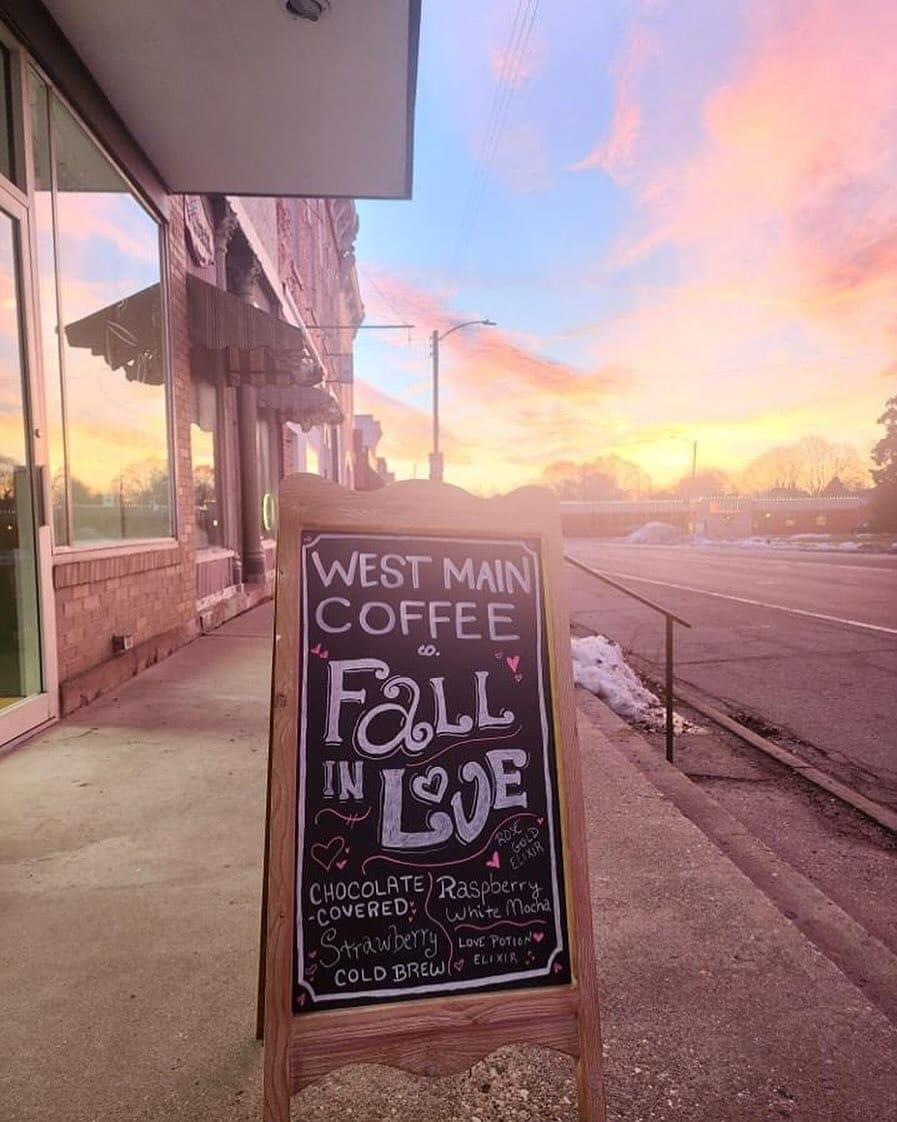 WEST MAIN
COFFEE
CO.
FALL
IN LOVE
ROSE
GOLD
ELIXIR
CHOCOLATE
-COVERED
Strawberry
COLD BREW
Raspberry
White Mocha
LOVE POTION
ELIXIR